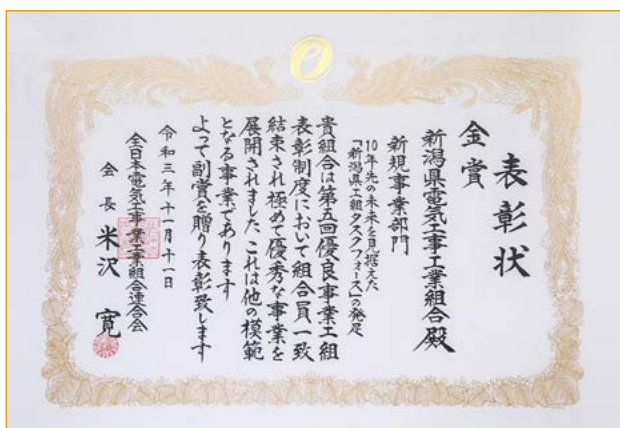 表彰状
金賞
新潟県電気工事工業組合殿
新規事業部門
10年先の未来を見据えた
「新潟県工組タスクフォース」の発足
貴組合は第五回優良事業工組
表彰制度において組合員一致
結束され極めて優秀な事業を
展開されましたこれは他の模範
となる事業であります
よって副賞を贈り表彰致します
令和三年十一月十一日
全日本電気工事業工業組合連合会
会長 米沢 寛